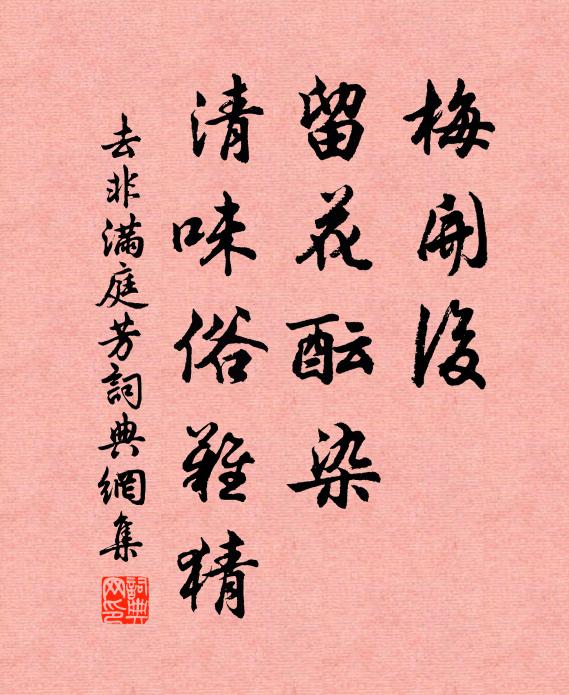 梅開後
留花酝染
清味俗難猜
去非滿庭芳詞典網集
詞典網印